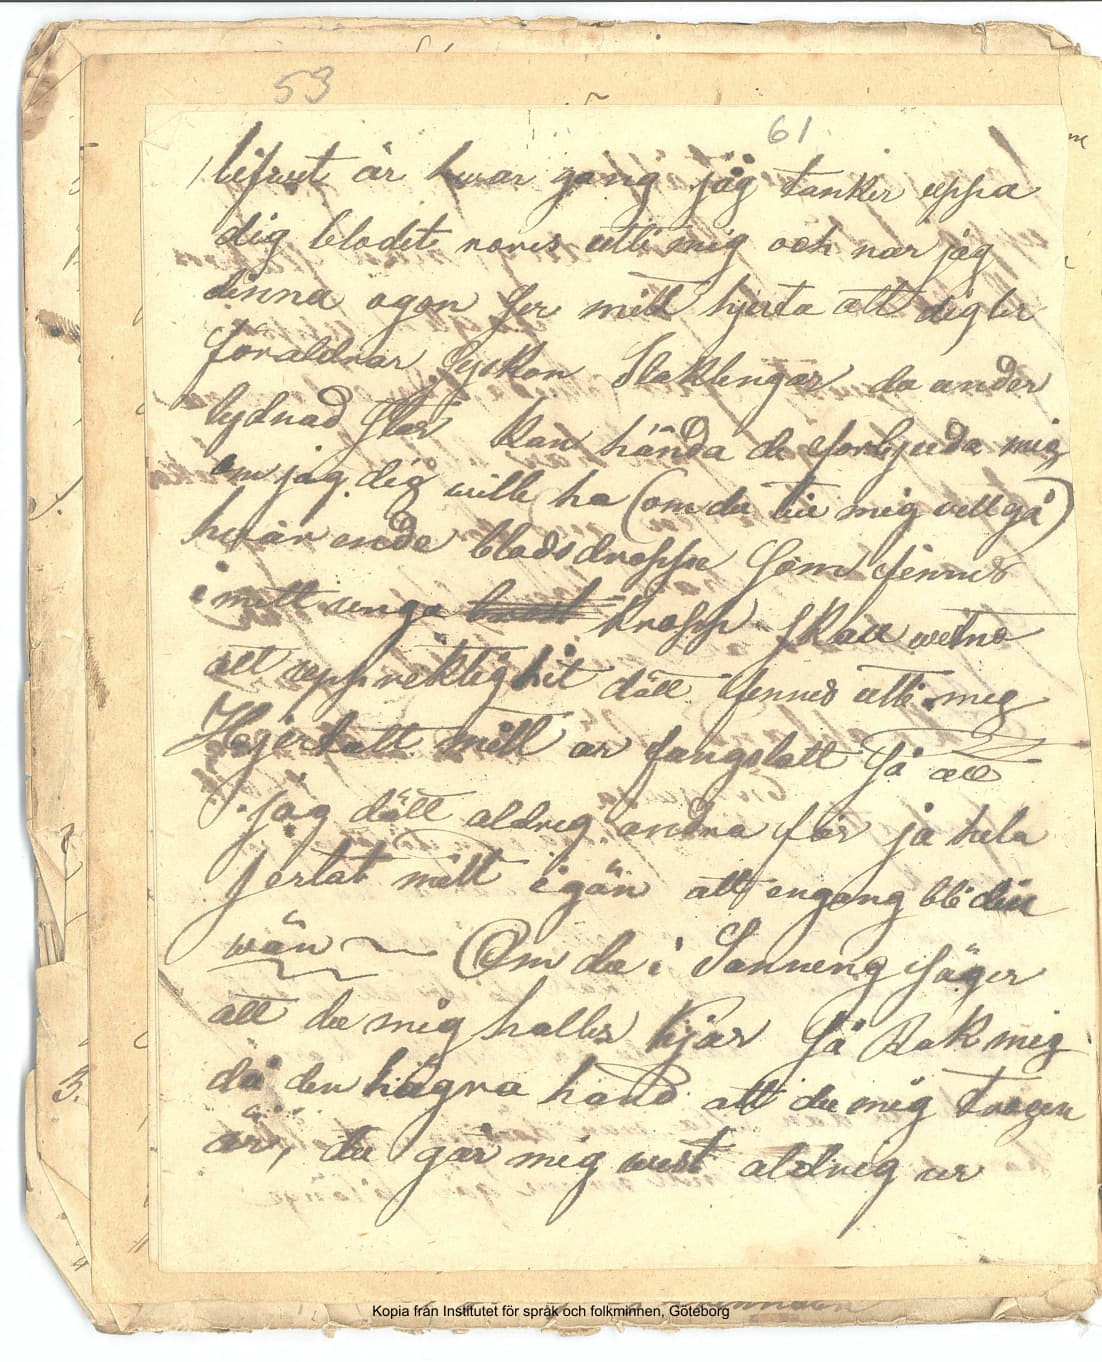 53
61
lifwet är hwar gang jag tanker uppa
dig blodet rores utti mig och nar jag
dinna ogon ser mitt hjerta att dig ler
föraldrar Syskon Slaktingar da under
lydnad star Kan hända de forbjuda mig
om jag dig will ha (om du till mig vill gå)
hwar ende blodsdroppe som finnes
i mitt unga kropp skall wittna
att uppriktighit dätt finnes utti mig
Hjertatt mitt ar fangslatt Så att
jag dätt aldrig andra får ja hela
jertat mitt igän att engang bli din
wän
Om du i Sanning Säger
att du mig haller kjar Så Rak mig
då den högra hand att du mig trogen
är, du går mig wist aldrig ur
Kopia från Institutet för språk och folkminnen, Göteborg